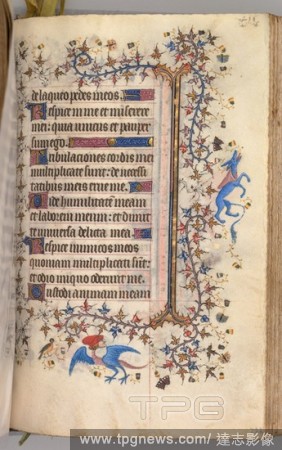 de laqueo pedes meos.
Respice in me et miserere
mei: quia unicus et pauper
sum ego.
Tribulaciones cordis mei
multiplicate sunt: de necessi
tatibus meis erue me.
Vide humilitatem meam
et laborem meum: et dimit
te universa delicta mea.
Respice inimicos meos
quoniam multiplicati sunt:
et odio iniquo oderunt me.
Custodi animam meam
TPG
www.tpgnews.com/ 達志影像